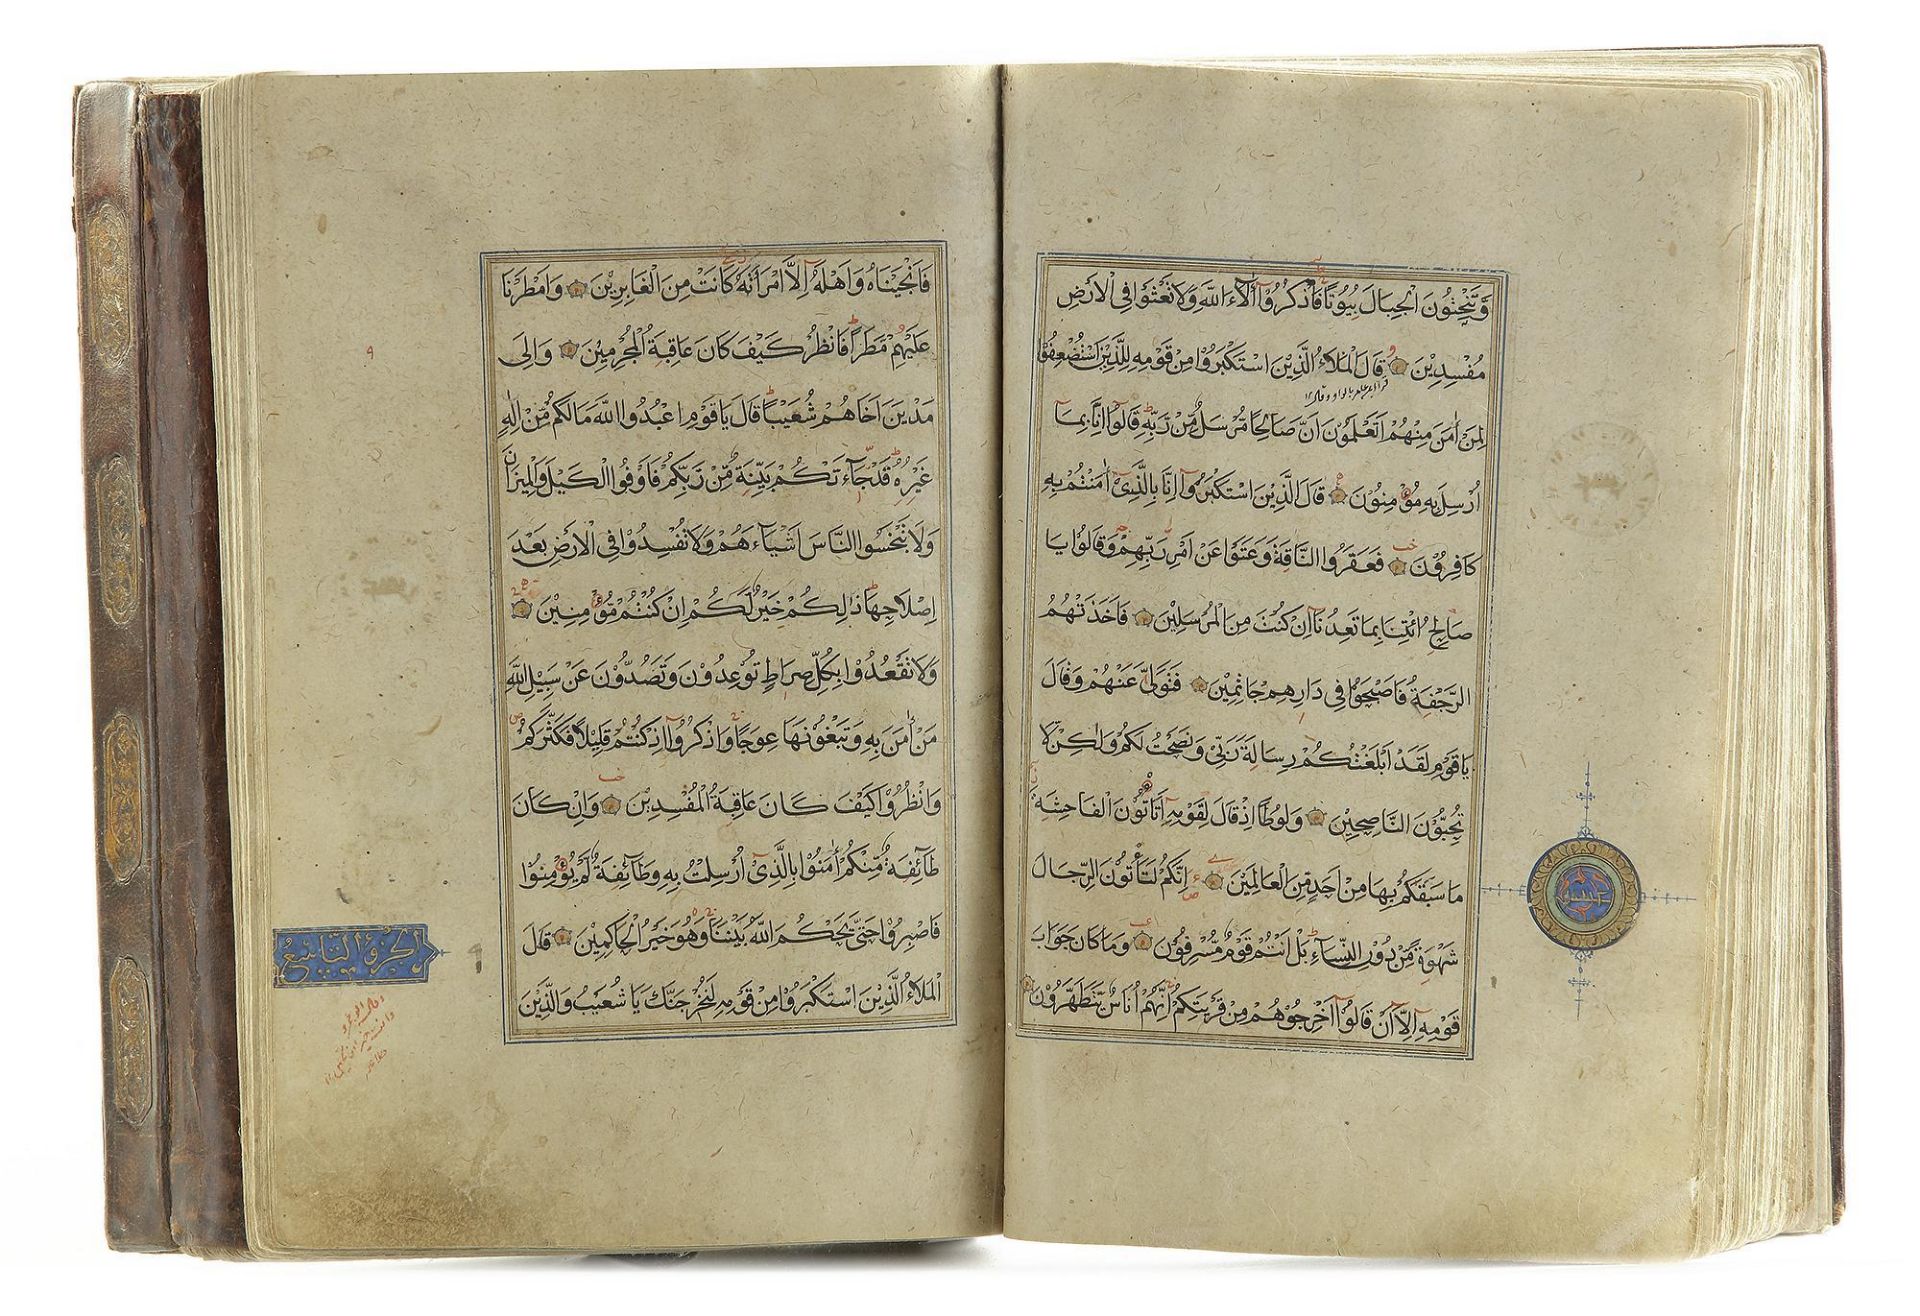 وَتَنْحِتُونَ الْجِبَالَ بُيُوتًا فَاذْكُرُوا آلَاءَ اللَّهِ وَلَا تَعْثَوْا فِي الْأَرْضِ
مُفْسِدِينَ قَالَ الْمَلَأُ الَّذِينَ اسْتَكْبَرُوا مِنْ قَوْمِهِ لِلَّذِينَ اسْتُضْعِفُوا
لِمَنْ آمَنَ مِنْهُمْ أَتَعْلَمُونَ أَنَّ صَالِحًا مُرْسَلٌ مِنْ رَبِّهِ قَالُوا إِنَّا بِمَا
أُرْسِلَ بِهِ مُؤْمِنُونَ قَالَ الَّذِينَ اسْتَكْبَرُوا إِنَّا بِالَّذِي آمَنْتُمْ بِهِ
كَافِرُونَ فَعَقَرُوا النَّاقَةَ وَعَتَوْا عَنْ أَمْرِ رَبِّهِمْ وَقَالُوا يَا
صَالِحُ ائْتِنَا بِمَا تَعِدُنَا إِنْ كُنْتَ مِنَ الْمُرْسَلِينَ فَأَخَذَتْهُمُ
الرَّجْفَةُ فَأَصْبَحُوا فِي دَارِهِمْ جَاثِمِينَ فَتَوَلَّى عَنْهُمْ وَقَالَ
يَا قَوْمِ لَقَدْ أَبْلَغْتُكُمْ رِسَالَةَ رَبِّي وَنَصَحْتُ لَكُمْ وَلَكِنْ لَا
تُحِبُّونَ النَّاصِحِينَ وَلُوطًا إِذْ قَالَ لِقَوْمِهِ أَتَأْتُونَ الْفَاحِشَةَ
مَا سَبَقَكُمْ بِهَا مِنْ أَحَدٍ مِنَ الْعَالَمِينَ إِنَّكُمْ لَتَأْتُونَ الرِّجَالَ
شَهْوَةً مِنْ دُونِ النِّسَاءِ بَلْ أَنْتُمْ قَوْمٌ مُسْرِفُونَ وَمَا كَانَ جَوَابَ
قَوْمِهِ إِلَّا أَنْ قَالُوا أَخْرِجُوهُمْ مِنْ قَرْيَتِكُمْ إِنَّهُمْ أُنَاسٌ يَتَطَهَّرُونَ
فَأَنْجَيْنَاهُ وَأَهْلَهُ إِلَّا امْرَأَتَهُ كَانَتْ مِنَ الْغَابِرِينَ وَأَمْطَرْنَا
عَلَيْهِمْ مَطَرًا فَانْظُرْ كَيْفَ كَانَ عَاقِبَةُ الْمُجْرِمِينَ وَإِلَى
مَدْيَنَ أَخَاهُمْ شُعَيْبًا قَالَ يَا قَوْمِ اعْبُدُوا اللَّهَ مَا لَكُمْ مِنْ إِلَهٍ
غَيْرُهُ قَدْ جَاءَتْكُمْ بَيِّنَةٌ مِنْ رَبِّكُمْ فَأَوْفُوا الْكَيْلَ وَالْمِيزَانَ
وَلَا تَبْخَسُوا النَّاسَ أَشْيَاءَهُمْ وَلَا تُفْسِدُوا فِي الْأَرْضِ بَعْدَ
إِصْلَاحِهَا ذَلِكُمْ خَيْرٌ لَكُمْ إِنْ كُنْتُمْ مُؤْمِنِينَ
وَلَا تَقْعُدُوا بِكُلِّ صِرَاطٍ تُوعِدُونَ وَتَصُدُّونَ عَنْ سَبِيلِ اللَّهِ
مَنْ آمَنَ بِهِ وَتَبْغُونَهَا عِوَجًا وَاذْكُرُوا إِذْ كُنْتُمْ قَلِيلًا فَكَثَّرَكُمْ
وَانْظُرُوا كَيْفَ كَانَ عَاقِبَةُ الْمُفْسِدِينَ وَإِنْ كَانَ
طَائِفَةٌ مِنْكُمْ آمَنُوا بِالَّذِي أُرْسِلْتُ بِهِ وَطَائِفَةٌ لَمْ يُؤْمِنُوا
فَاصْبِرُوا حَتَّى يَحْكُمَ اللَّهُ بَيْنَنَا وَهُوَ خَيْرُ الْحَاكِمِينَ قَالَ
الْمَلَأُ الَّذِينَ اسْتَكْبَرُوا مِنْ قَوْمِهِ لَنُخْرِجَنَّكَ يَا شُعَيْبُ وَالَّذِينَ
الجزؤ التاسع